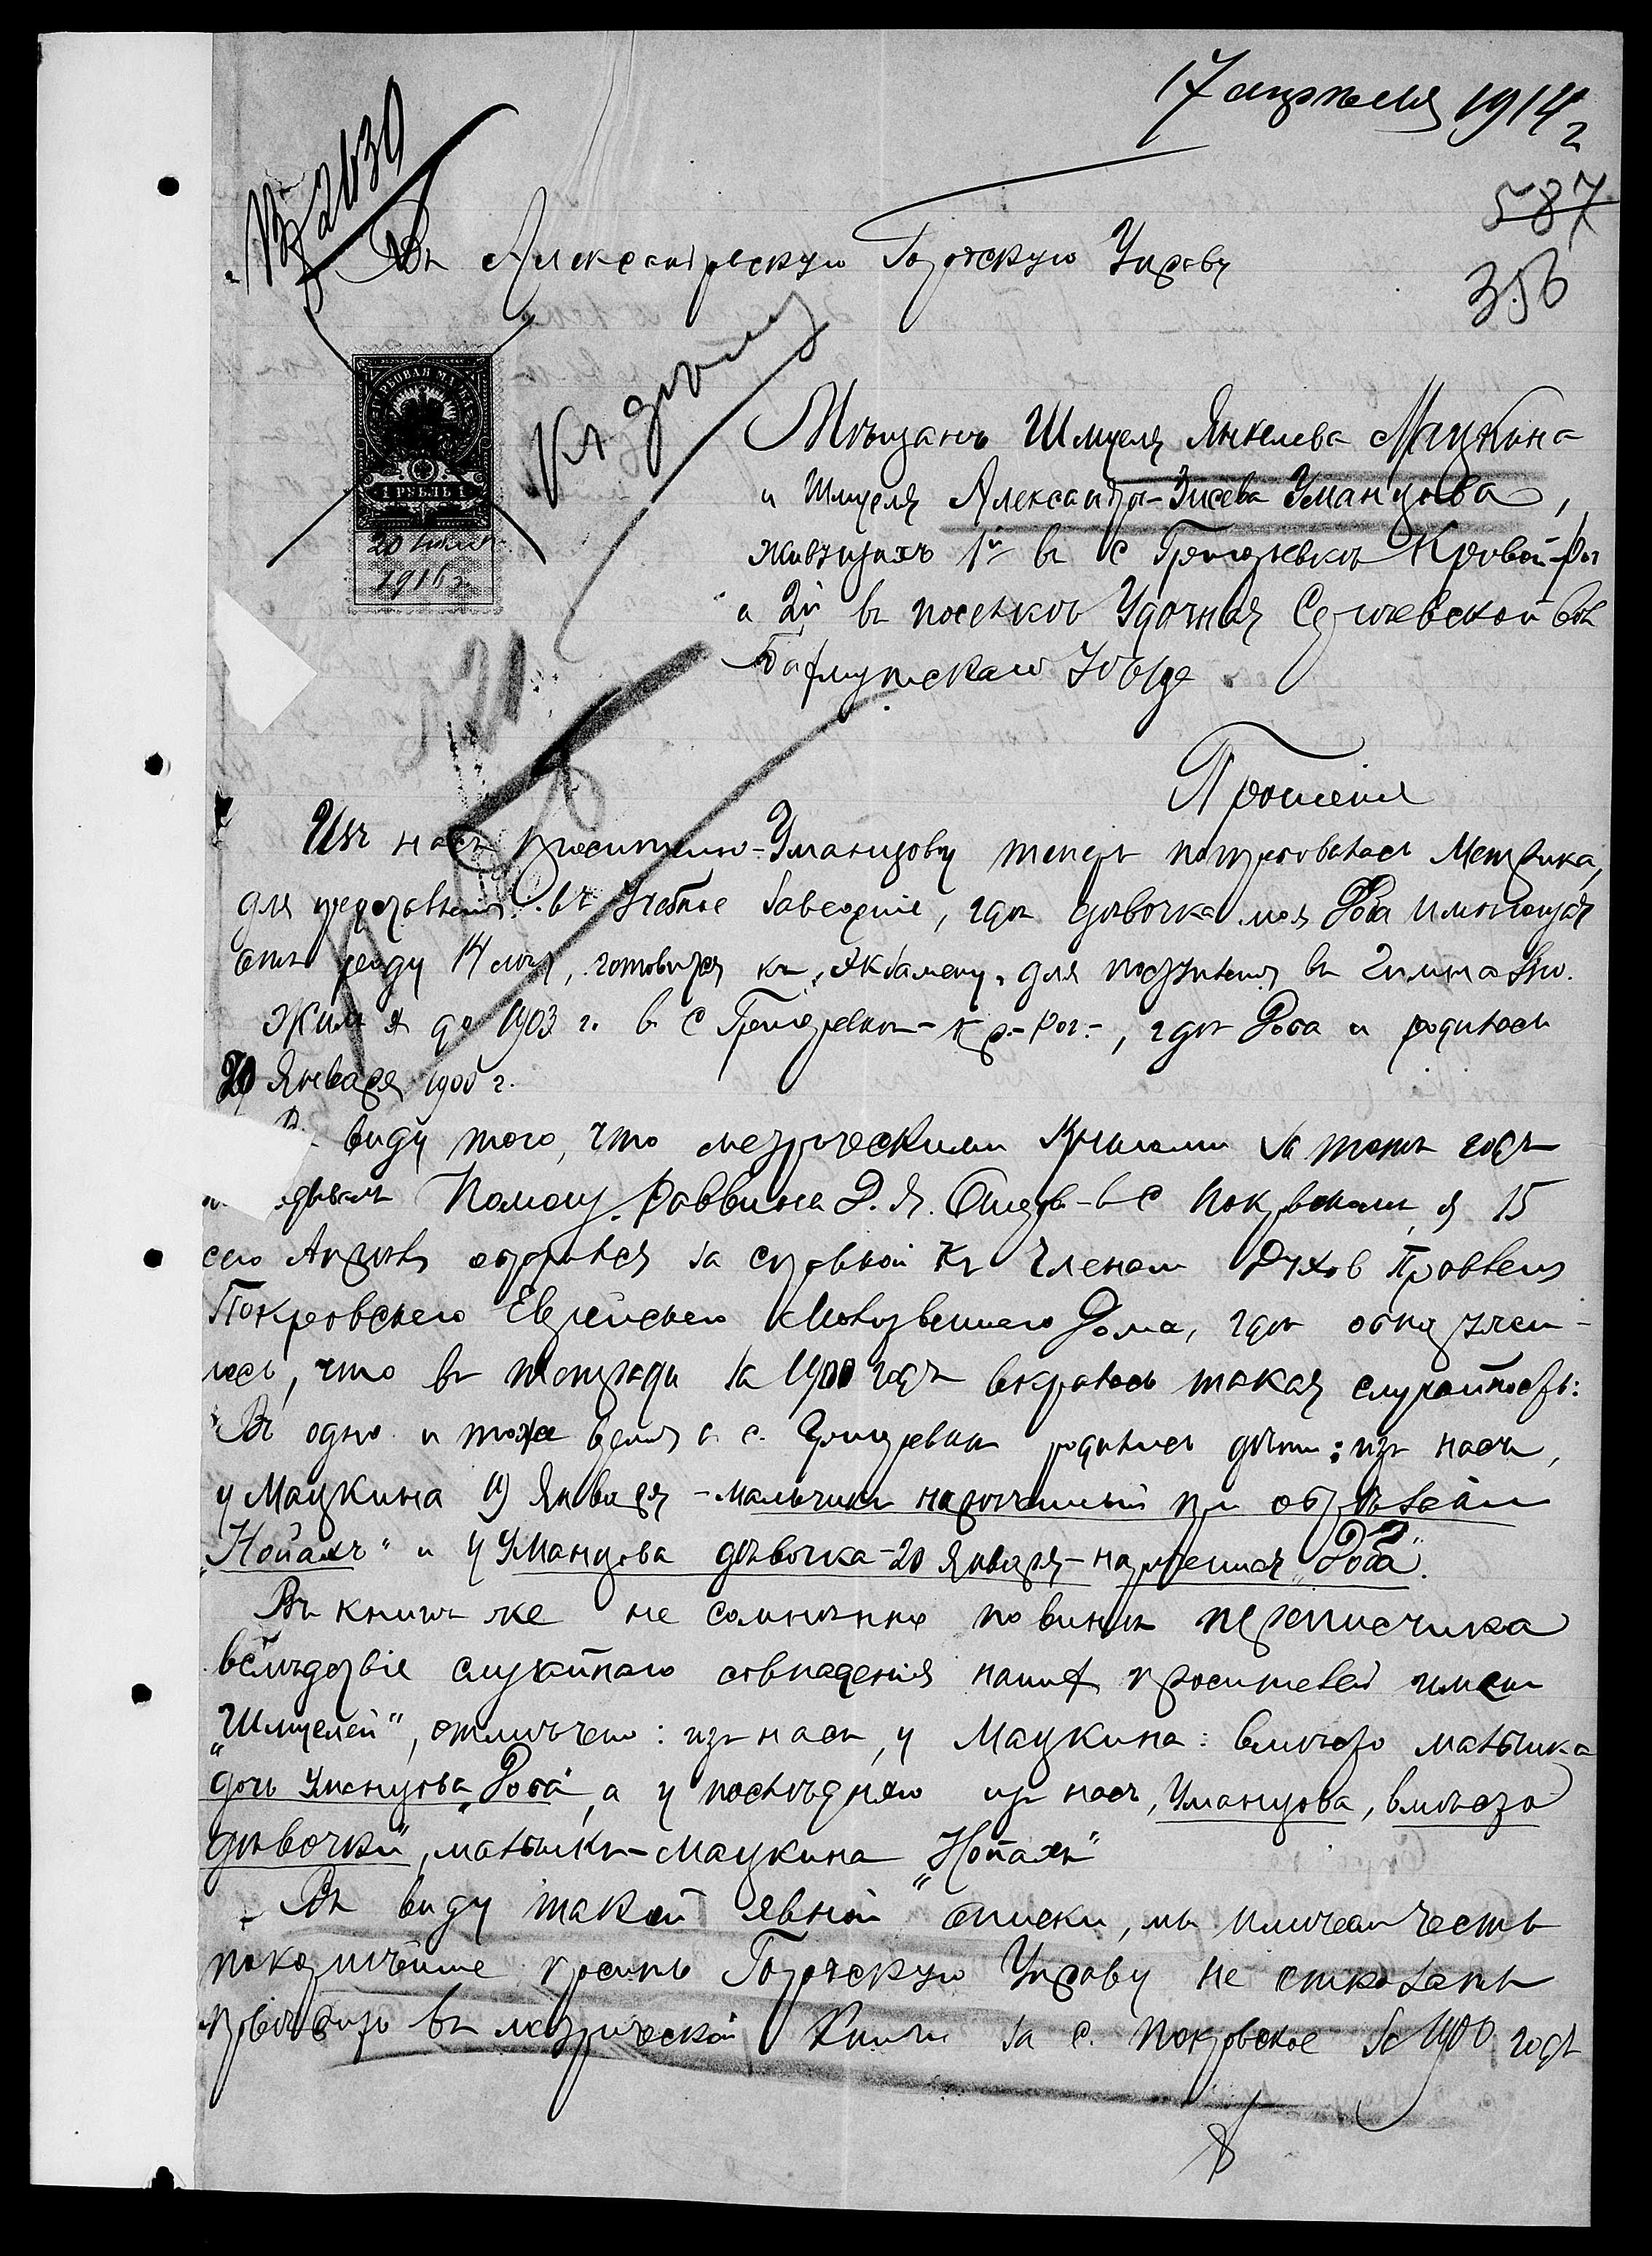 17 апреля 1914 г
587
356
Вх 2639
Въ Александровскую Городскую Управу
Къ дѣлу
ГЕРБОВАЯ МАРКА
1 РУБЛЬ 1
20
1916 г.
Мѣщанъ Шмуеля Янкелева Мацкина
и Шмуеля Александра-Зисева Уманцова,
живущихъ 1й въ с Григорьевкѣ Кривой-Рог
а 2й въ поселкѣ Удачная Сергіевской вол
Бахмутскаго Уѣзда.
Прошеніе
Изъ насъ просителю-Уманцову теперь потребовалась Метрика,
для представленія въ Учебное Заведеніе, гдѣ дѣвочка моя Роба имѣющая
отъ роду 14 лѣтъ, готовится къ экзамену для поступленія въ Гимназію.
Жилъ я до 1903 г. въ с Григорьевкѣ-Кр-Рог.-, гдѣ Роба и родилась
20 Января 1900 г.
Въ виду того, что метрическими книгами за тотъ годъ
Помощ. Раввина Э. Я. въ с Покровскомъ, я 15
сего Апрѣля обратился за справкой къ Членам Духов Правленія
Покровскаго Еврейскаго Молитвеннаго Дома, гдѣ обнаружи-
лось, что въ тетради за 1900 годъ вкралась такая случайность:
Въ одно и тоже время в с. Григорьевкѣ родились дѣти: изъ насъ,
у Мацкина 19 Января - мальчикъ нареченный при обрѣзаніи
„Нойахъ" и у Уманцова дѣвочка-20 Января-нареченная „Роба".
Въ книгѣ же не сомнѣнно по винѣ переписчика
вслѣдствіе случайнаго совпаденія нашихъ просителей именъ
„Шмуелей", отмѣчено: изъ насъ, у Мацкина: вмѣсто мальчика
дочь Уманцова „Роба", а у послѣдняго изъ насъ, Уманцова, вмѣсто
дѣвочки, мальчикъ-Мацкина „Нойахъ"
Въ виду такой явной описки, мы имѣемъ честь
покорнѣйше просить Городскую Управу не отказать
въ метрической Книги за с. Покровское за 1900 годъ